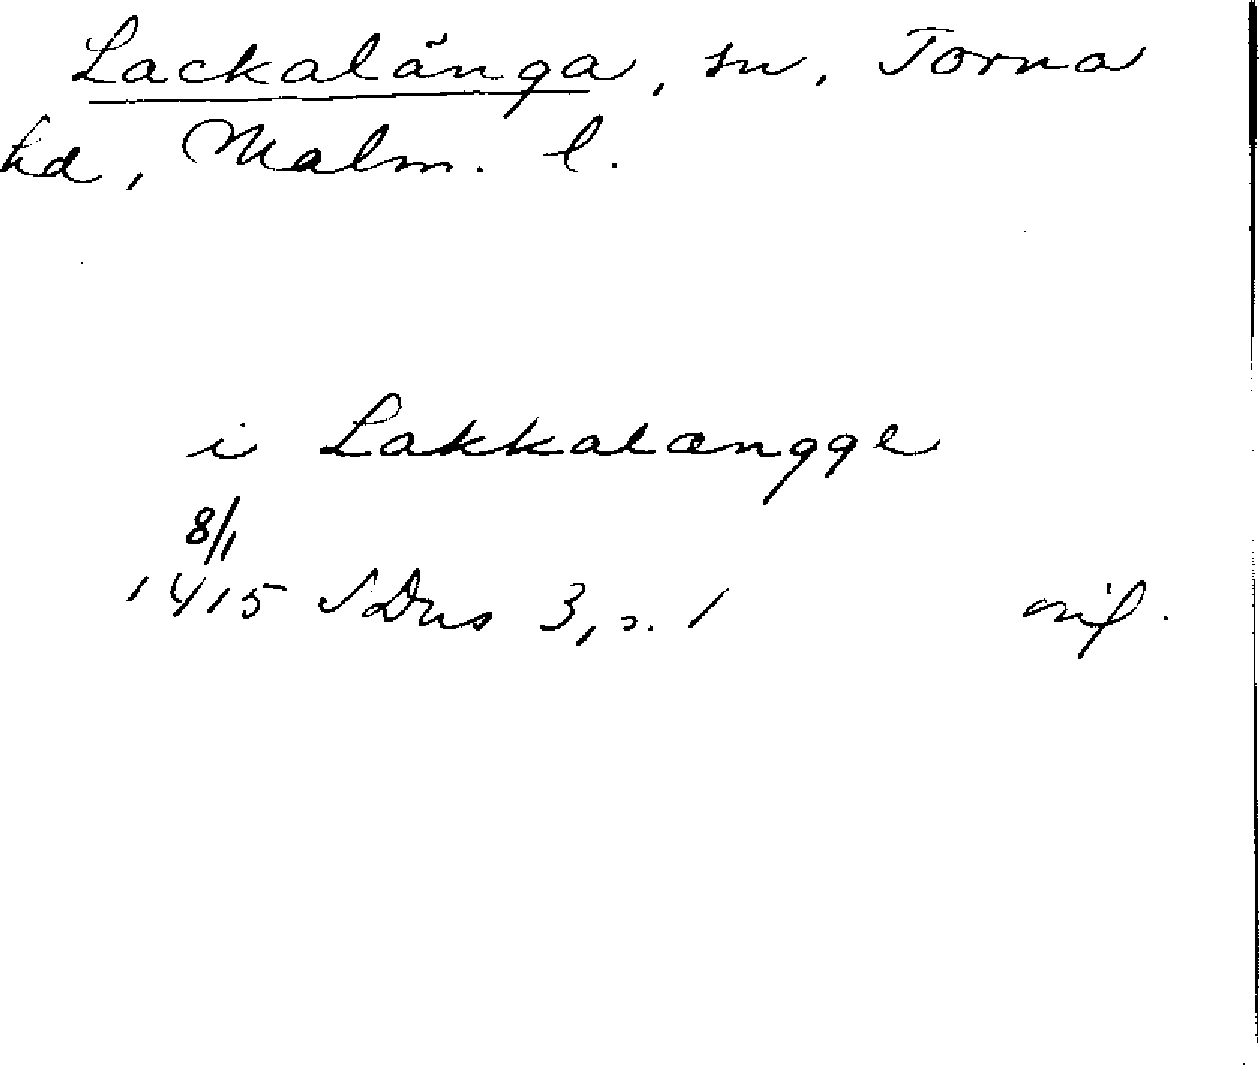 Lackalänga, sn, Torna
hd, Malm. l.
i Lakkalængge
8/1
1415 SDns 3, s. 1